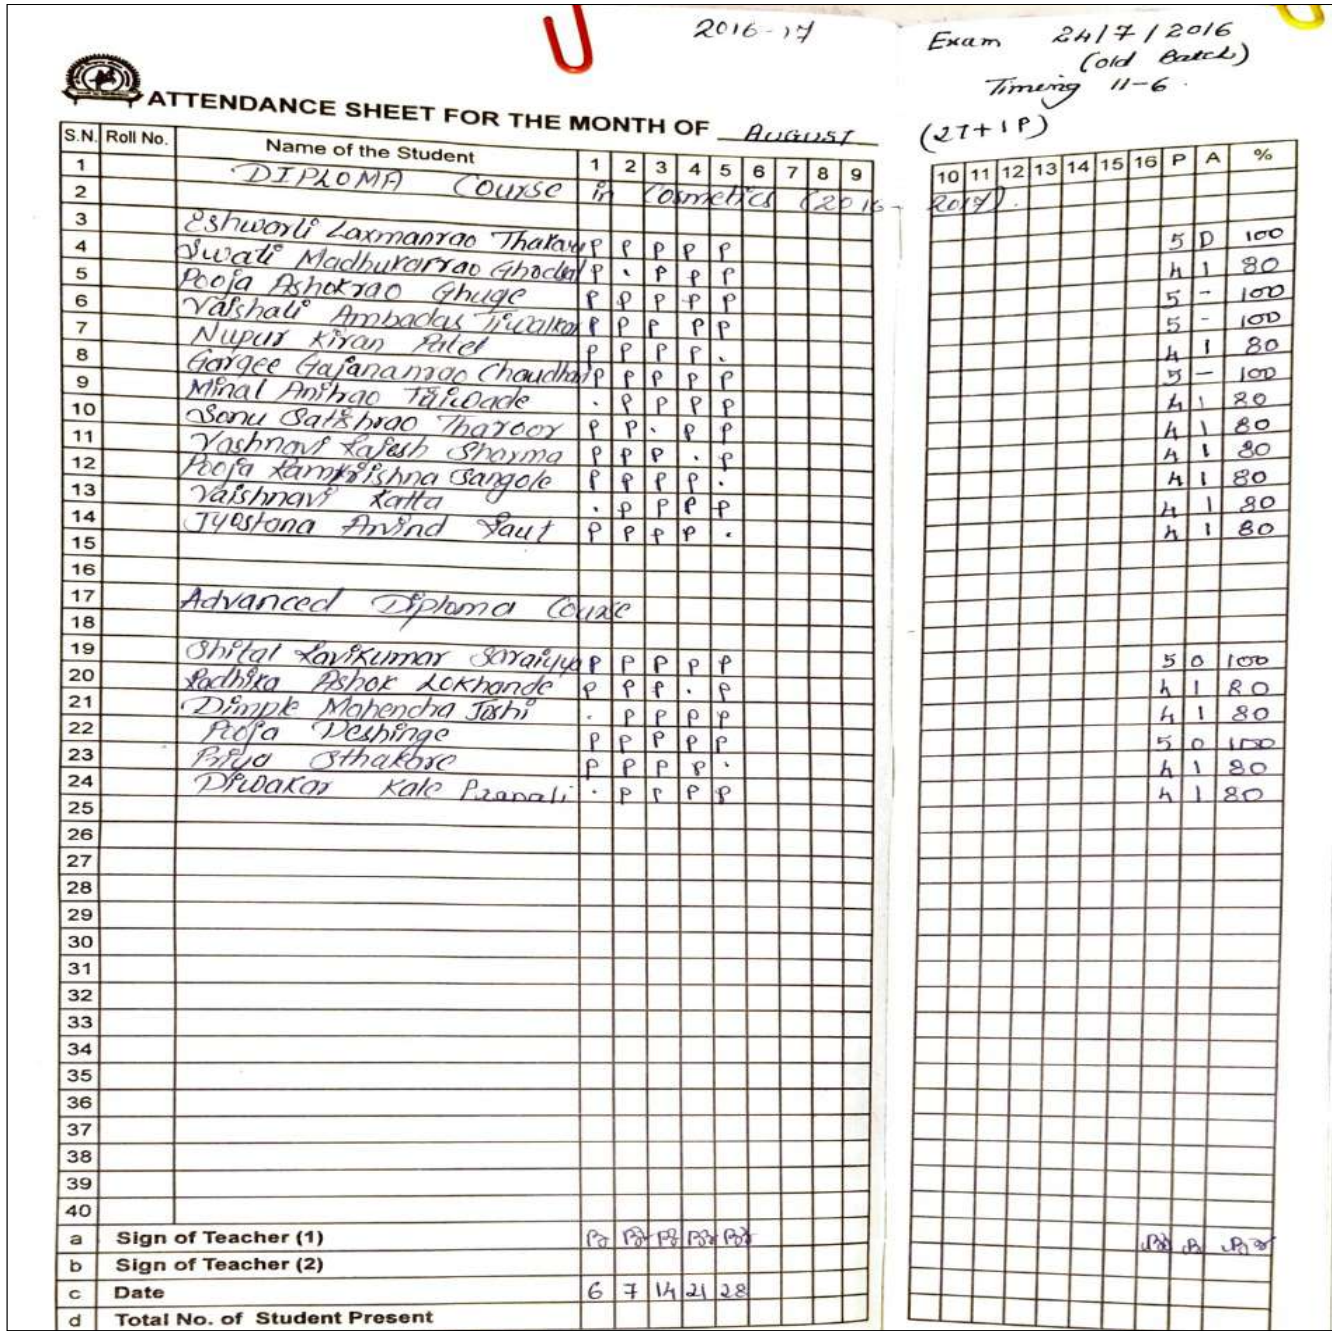 2016-17
Exam 24/7/2016
(old Batch)
Timing 11-6.
(2T+1P)
ATTENDANCE SHEET FOR THE MONTH OF AUGUST
S.N. Roll No. Name of the Student 1 2 3 4 5 6 7 8 9 10 11 12 13 14 15 16 P A %
1 DIPLOMA Course in Cosmetics (2016-2017).
2
3 Eshwarli Laxmanrao P P P P P 5 0 100
4 Swati Madhukarrao P . P P P 4 1 80
5 Pooja Ashokrao Ghuge P P P P P 5 - 100
6 Vaishali Ambadas P P P P P 5 - 100
7 Nupur Kiran Patel P P P P . 4 1 80
8 Gargee Gajananrao P P P P P 5 - 100
9 Minal . P P P P 4 1 80
10 Sonu Satishrao Tharoor P P . P P 4 1 80
11 Vashnavi Rajesh Sharma P P P . P 4 1 80
12 Pooja Ramkrishna Sangole P P P P . 4 1 80
13 Vaishnavi Katta . P P P P 4 1 80
14 Jyostana Arvind Raut P P P P . 4 1 80
15
16
17 Advanced Diploma Course
18
19 Shital Ravikumar Saraiyya P P P P P 5 0 100
20 Radhika Ashok Lokhande P P P . P 4 1 80
21 Dimple Mahendra Joshi . P P P P 4 1 80
22 Pooja Deshinge P P P P P 5 0 100
23 Priya P P P P . 4 1 80
24 Diwakar Kale Pranali . P P P P 4 1 80
25
26
27
28
29
30
31
32
33
34
35
36
37
38
39
40
a Sign of Teacher (1)
b Sign of Teacher (2)
c Date 6 7 14 21 28
d Total No. of Student Present